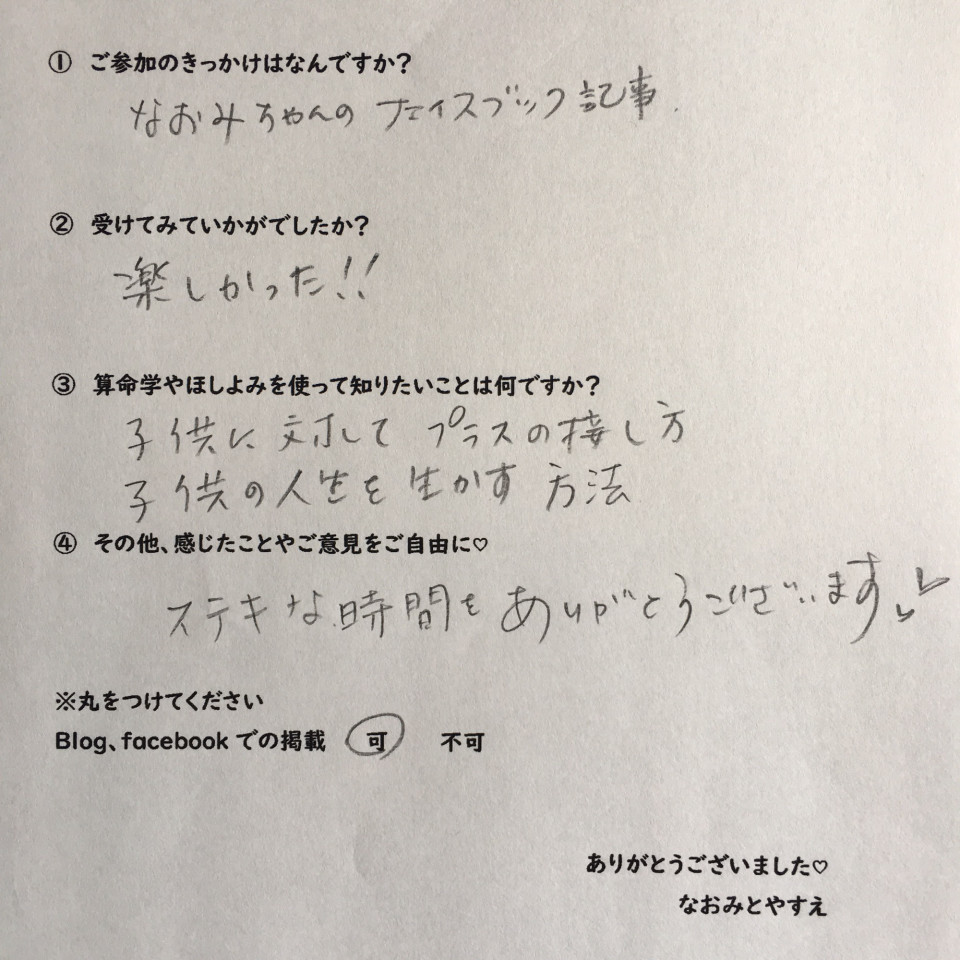 ① ご参加のきっかけはなんですか?
なおみちゃんの フェイスブック 記事.
② 受けてみていかがでしたか?
楽しかった!!
③ 算命学やほしよみを使って知りたいことは何ですか?
子供に対して プラスの接し方
子供の人生を 生かす 方法
④ その他、感じたことやご意見をご自由に♡
ステキな時間を ありがとうございます♡
※丸をつけてください
Blog、facebook での掲載 可 不可
ありがとうございました♡
なおみとやすえ